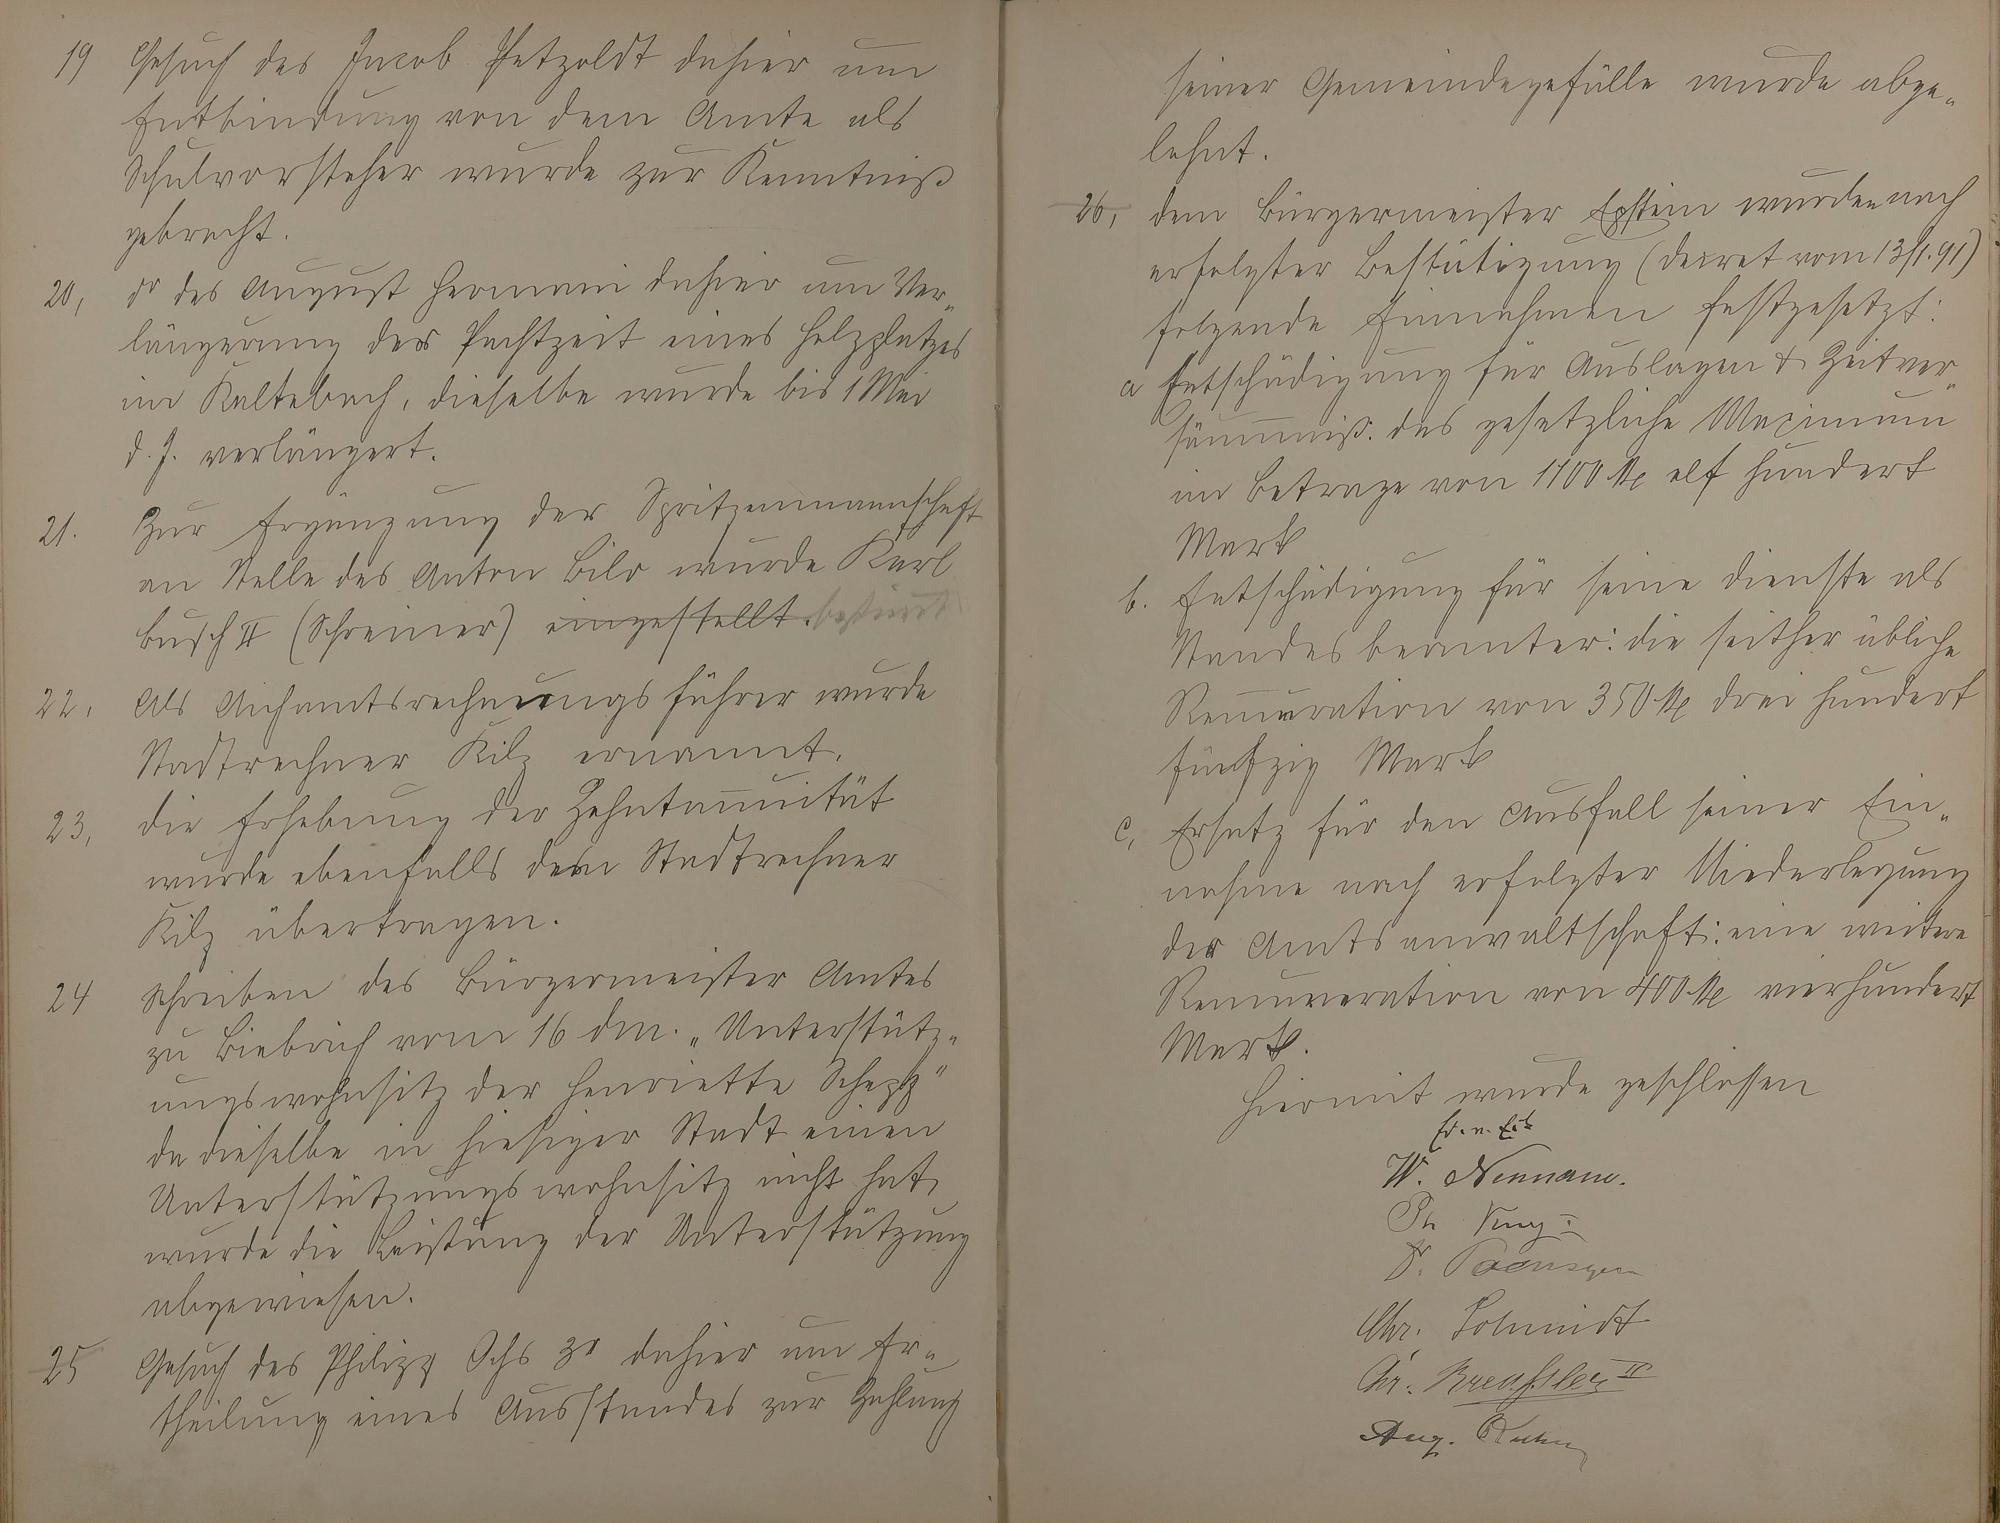 19 Gesuch des Jacob Petzoldt dahier um
Entbindung von dem Amte als
Schulvorsteher wurde zur Kenntniß
gebracht.
20, do des August Hermani dahier um Ver-
längerung der Pachtzeit eines Holzplatzes
im Kaltebach, dieselbe wurde bis 1 Mai
d. J. verlängert.
21. Zur Ergänzung der Spritzenmannschaft
an Stelle des Anton Bilo wurde Karl
Busch II (Schreiner) eingestellt.
22, Als Aichamtsrechnungsführer wurde
Stadtrechner Kilz ernannt.
23, die Erhebung der Zehntannuität
wurde ebenfalls dem Stadtrechner
Kilz übertragen.
24 Schreiben des Bürgermeister Amtes
zu Biebrich vom 16 dM. „Unterstütz-
ungswohnsitz der Henriette
da dieselbe in hiesiger Stadt einen
Unterstützungswohnsitz nicht hat,
wurde die Leistung der Unterstützung
abgewiesen.
25 Gesuch des Philipp Ochs 3r dahier um Er-
theilung eines Ausstandes zur Zahlung
seiner Gemeindegefälle wurde abge-
lehnt.
26, dem Bürgermeister Epstein wurden nach
erfolgter Bestätigung (Decret vom 13/1.91)
folgende Einnahmen festgesetzt:
a Entschädigung für Auslagen & Zeitver-
säumniß. das gesetzliche Maximum
im Betrage von 1100 M elf hundert
Mark
b. Entschädigung für seine Dienste als
Standesbeamter: die seither übliche
Remuration von 350 M drei hundert
fünfzig Mark
c, Ersatz für den Ausfall seiner Ein-
nahme nach erfolgter Niederlegung
der Amtsanwaltschaft: eine weitere
Remuneration von 400 M vierhundert
Mark.
Hiermit wurde geschlossen
W. Neumann.
Ph
Chr. Schmidt
Chr. Kreussler II
Aug. Ruhn